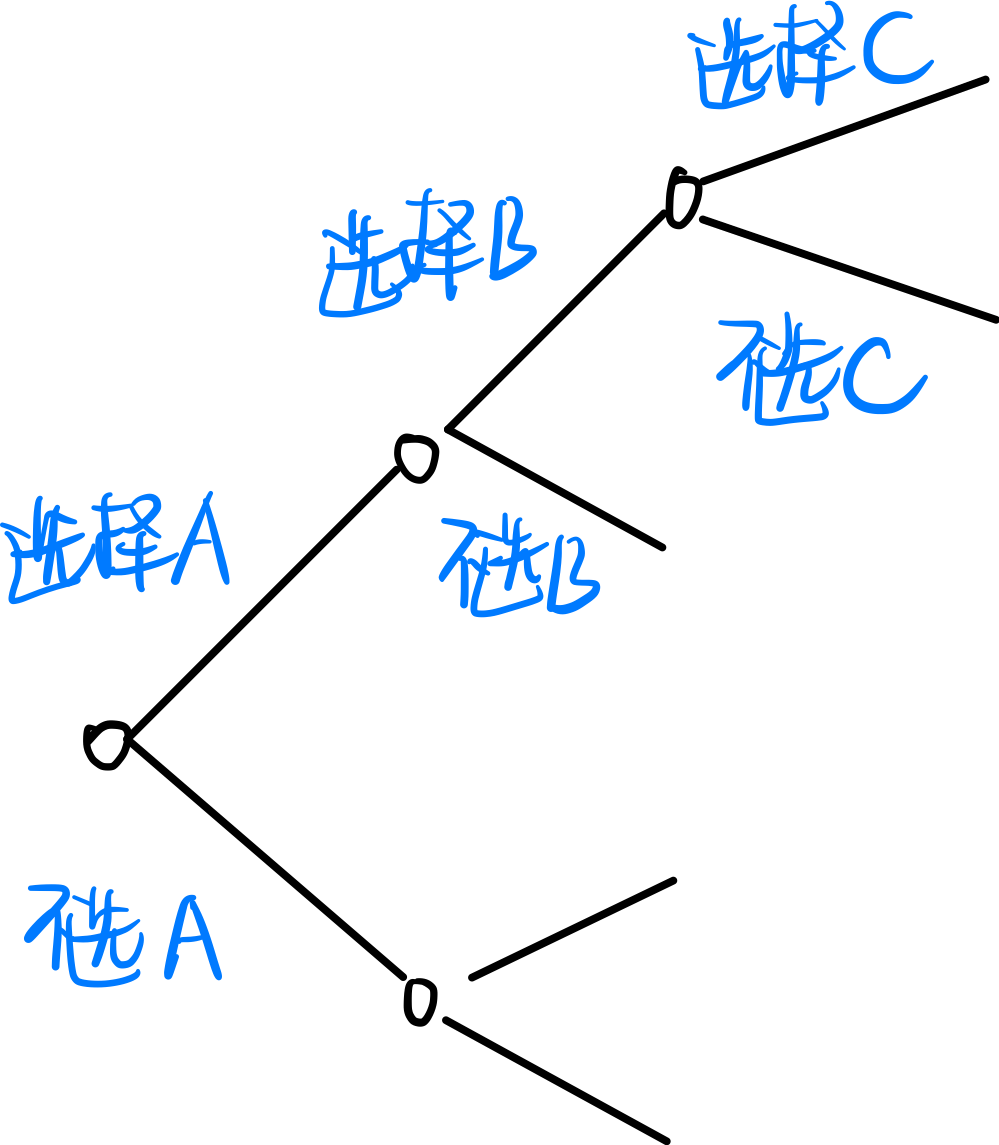 选择C
选择B
不选C
选择A
不选B
不选A